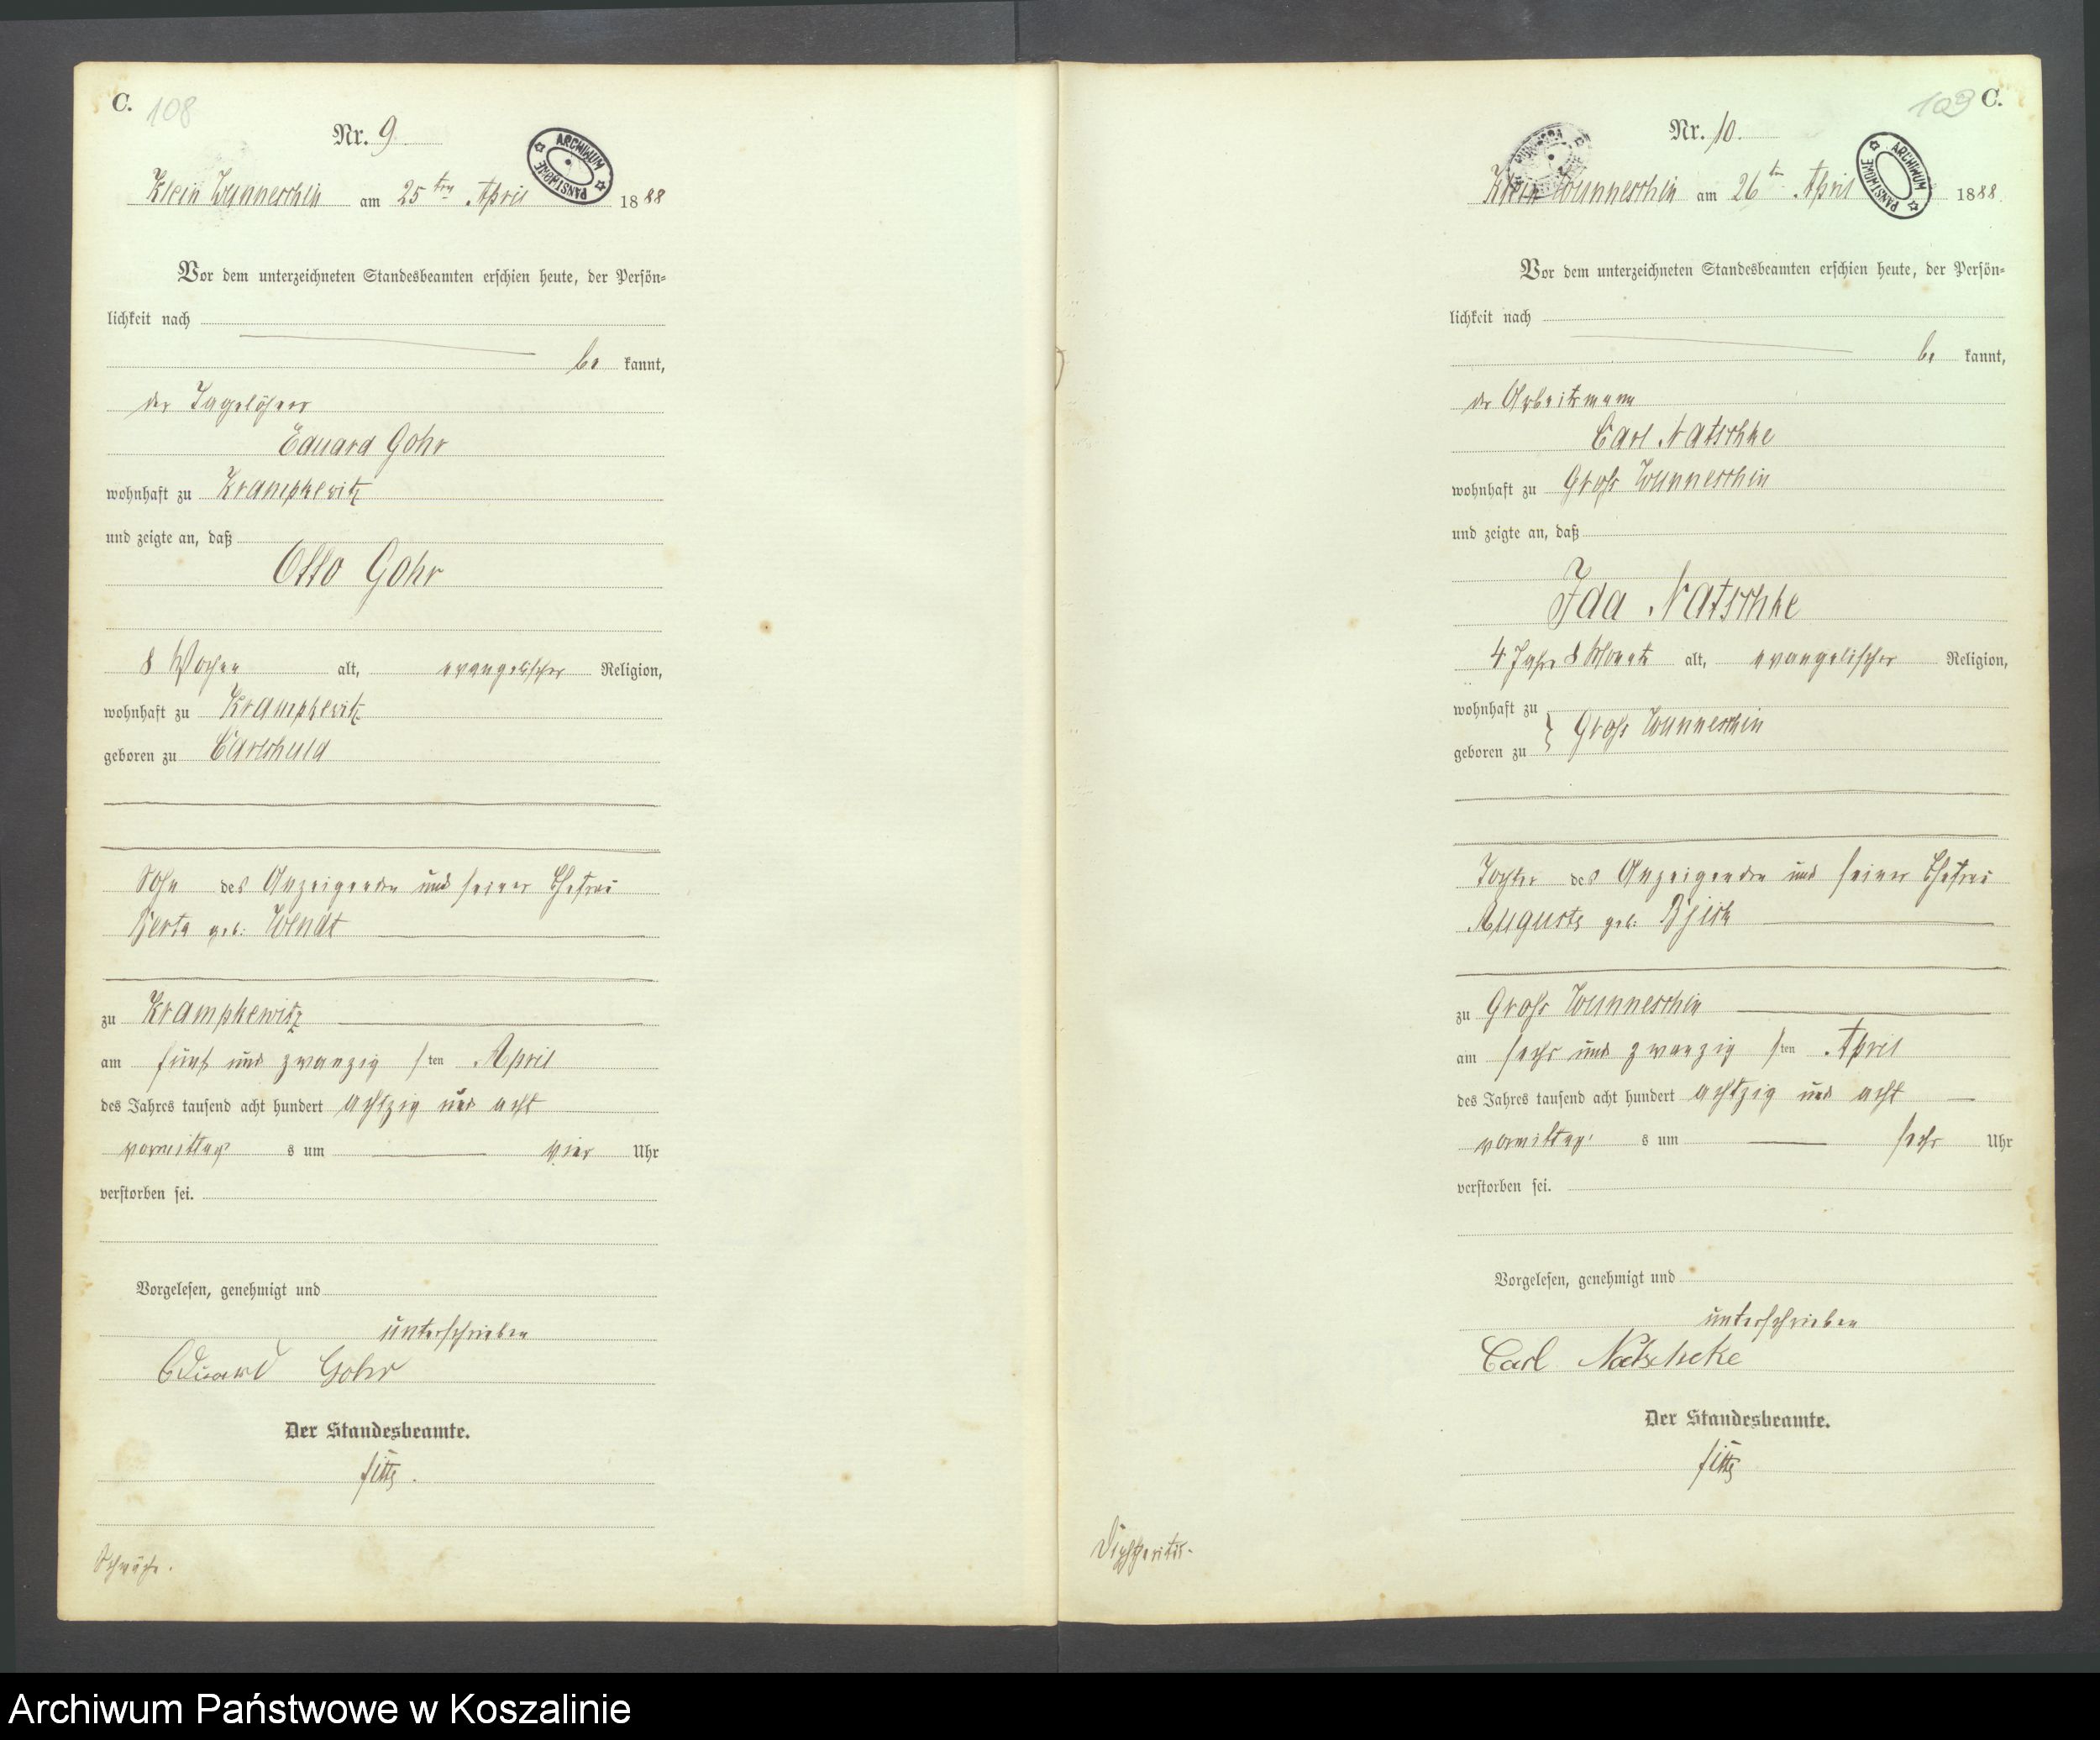 C. 108
Nr. 9.
ARCHIWUM PAŃSTWOWE
Klein Wunneschin am 25ten April 1888
Vor dem unterzeichneten Standesbeamten erschien heute, der Persön=
lichkeit nach
be kannt,
der Tagelöhner
Eduard Gohr
wohnhaft zu Krampkewitz
und zeigte an, daß
Otto Gohr
8 Wochen alt, evangelischer Religion,
wohnhaft zu Krampkewitz
geboren zu
Sohn des Anzeigenden und seiner Ehefrau
Berta geb: Wendt
zu Krampkewitz
am fünf und zwanzig sten April
des Jahres tausend acht hundert achtzig und acht
vormittag s um vier Uhr
verstorben sei.
Vorgelesen, genehmigt und
unterschrieben
Eduard Gohr
Der Standesbeamte.
Schwäche.
109 C.
Nr. 10.
ARCHIWUM PAŃSTWOWE
Klein Wunneschin am 26ten April 1888.
Vor dem unterzeichneten Standesbeamten erschien heute, der Persön=
lichkeit nach
be kannt,
der Arbeitsmann
Carl Natschke
wohnhaft zu Groß Wunneschin
und zeigte an, daß
Ida Natschke
4 Jahre 8 Monate alt, evangelischer Religion,
wohnhaft zu
geboren zu } Groß Wunneschin
Tochter des Anzeigenden und seiner Ehefrau
Auguste geb:
zu Groß Wunneschin
am sechs und zwanzig sten April
des Jahres tausend acht hundert achtzig und acht
vormittag s um sechs Uhr
verstorben sei.
Vorgelesen, genehmigt und
unterschrieben
Carl Natschcke
Der Standesbeamte.
Diphtheritis.
Archiwum Państwowe w Koszalinie